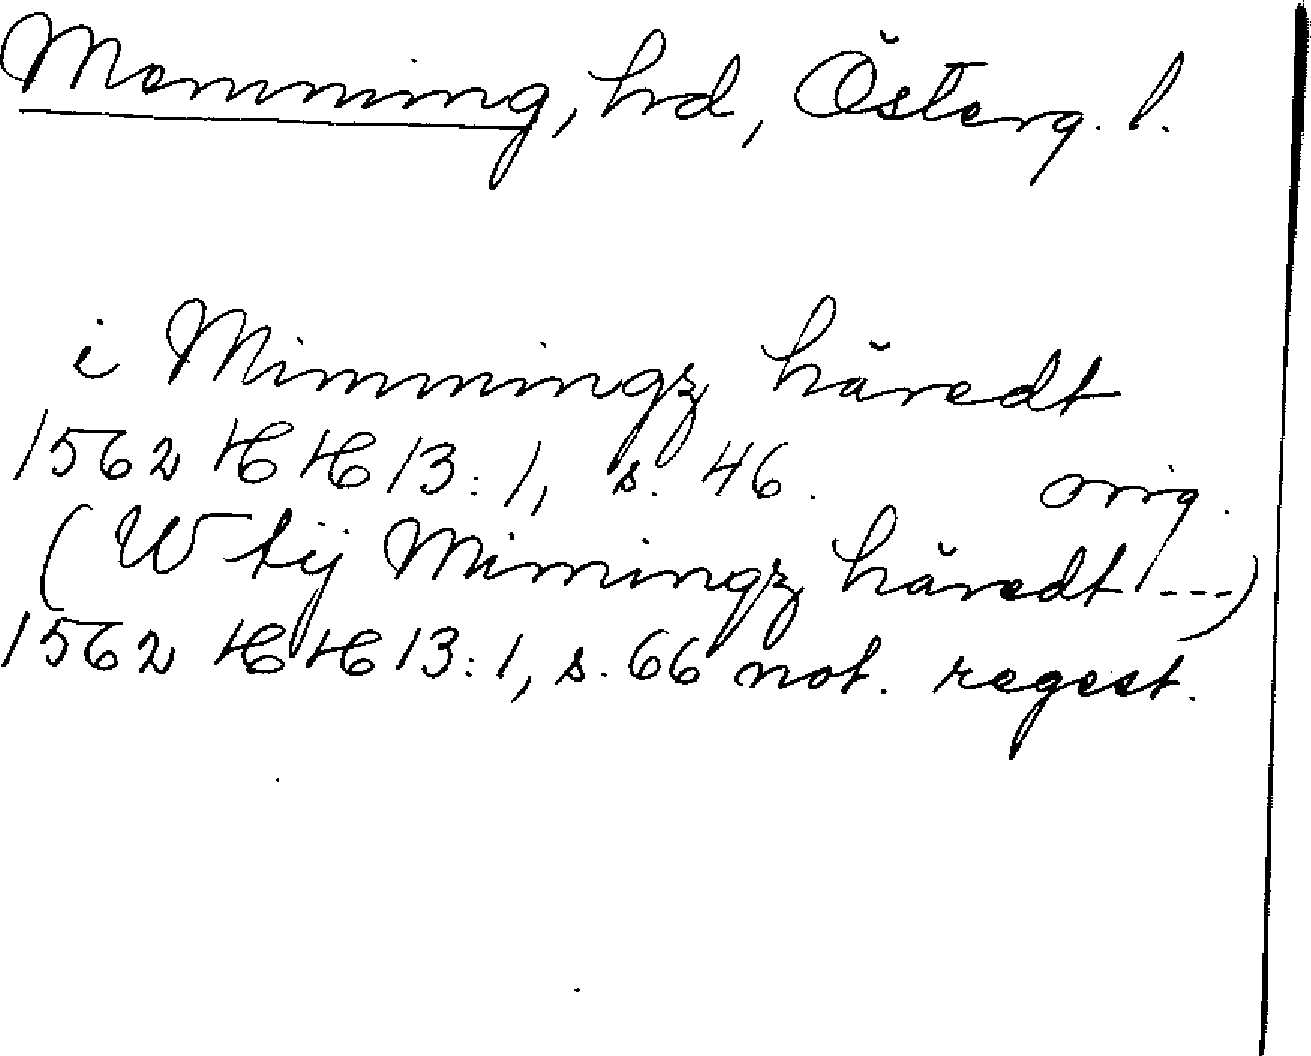 Memming, hd, Österg. l.
i Mimmingz häredt
1562 HH 13:1, s. 46. orig.
(W tij Mimingz häredt ---)
1562 HH 13:1, s. 66 not. regest.